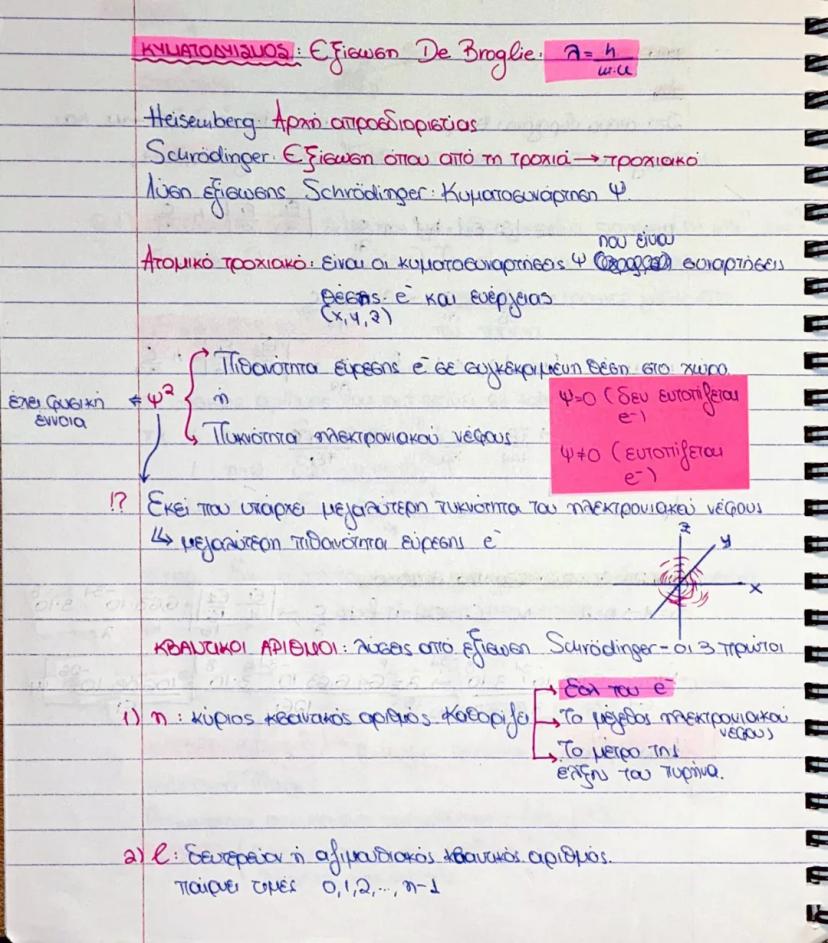 ΚΥΜΑΤΟΔΥΙΣΜΟΣ: Εξίσωση De Broglie: λ = h / m·u
Heisemberg: Αρχή απροσδιοριστίας
Schrödinger: Εξίσωση όπου από τη τροχιά → τροχιακό
Λύση εξίσωσης Schrödinger: Κυματοσυνάρτηση Ψ.
που είναι
Ατομικό τροχιακό: είναι οι κυματοσυναρτήσεις Ψ συναρτήσεις
θέσης e⁻ και ενέργειας
(x, y, z)
Πιθανότητα εύρεσης e⁻ σε συγκεκριμένη θέση στο χώρο
έχει φυσική έννοια ← Ψ² ή
Πυκνότητα ηλεκτρονιακού νέφους
Ψ=0 (δεν εντοπίζεται
e⁻)
Ψ≠0 (εντοπίζεται
e⁻)
!? Εκεί που υπάρχει μεγαλύτερη πυκνότητα του ηλεκτρονιακού νέφους
↳ μεγαλύτερη πιθανότητα εύρεσης e⁻
z
y
x
ΚΒΑΝΤΙΚΟΙ ΑΡΙΘΜΟΙ: λύσεις από εξίσωση Schrödinger - οι 3 πρώτοι
→ Εολ του e⁻
1) n: κύριος κβαντικός αριθμός Καθορίζει → Το μέγεθος ηλεκτρονιακού
νέφους
→ Το μέτρο της
έλξης του πυρήνα.
2) l: δευτερεύον ή αζιμουθιακός κβαντικός αριθμός.
παίρνει τιμές 0,1,2,..., n-1